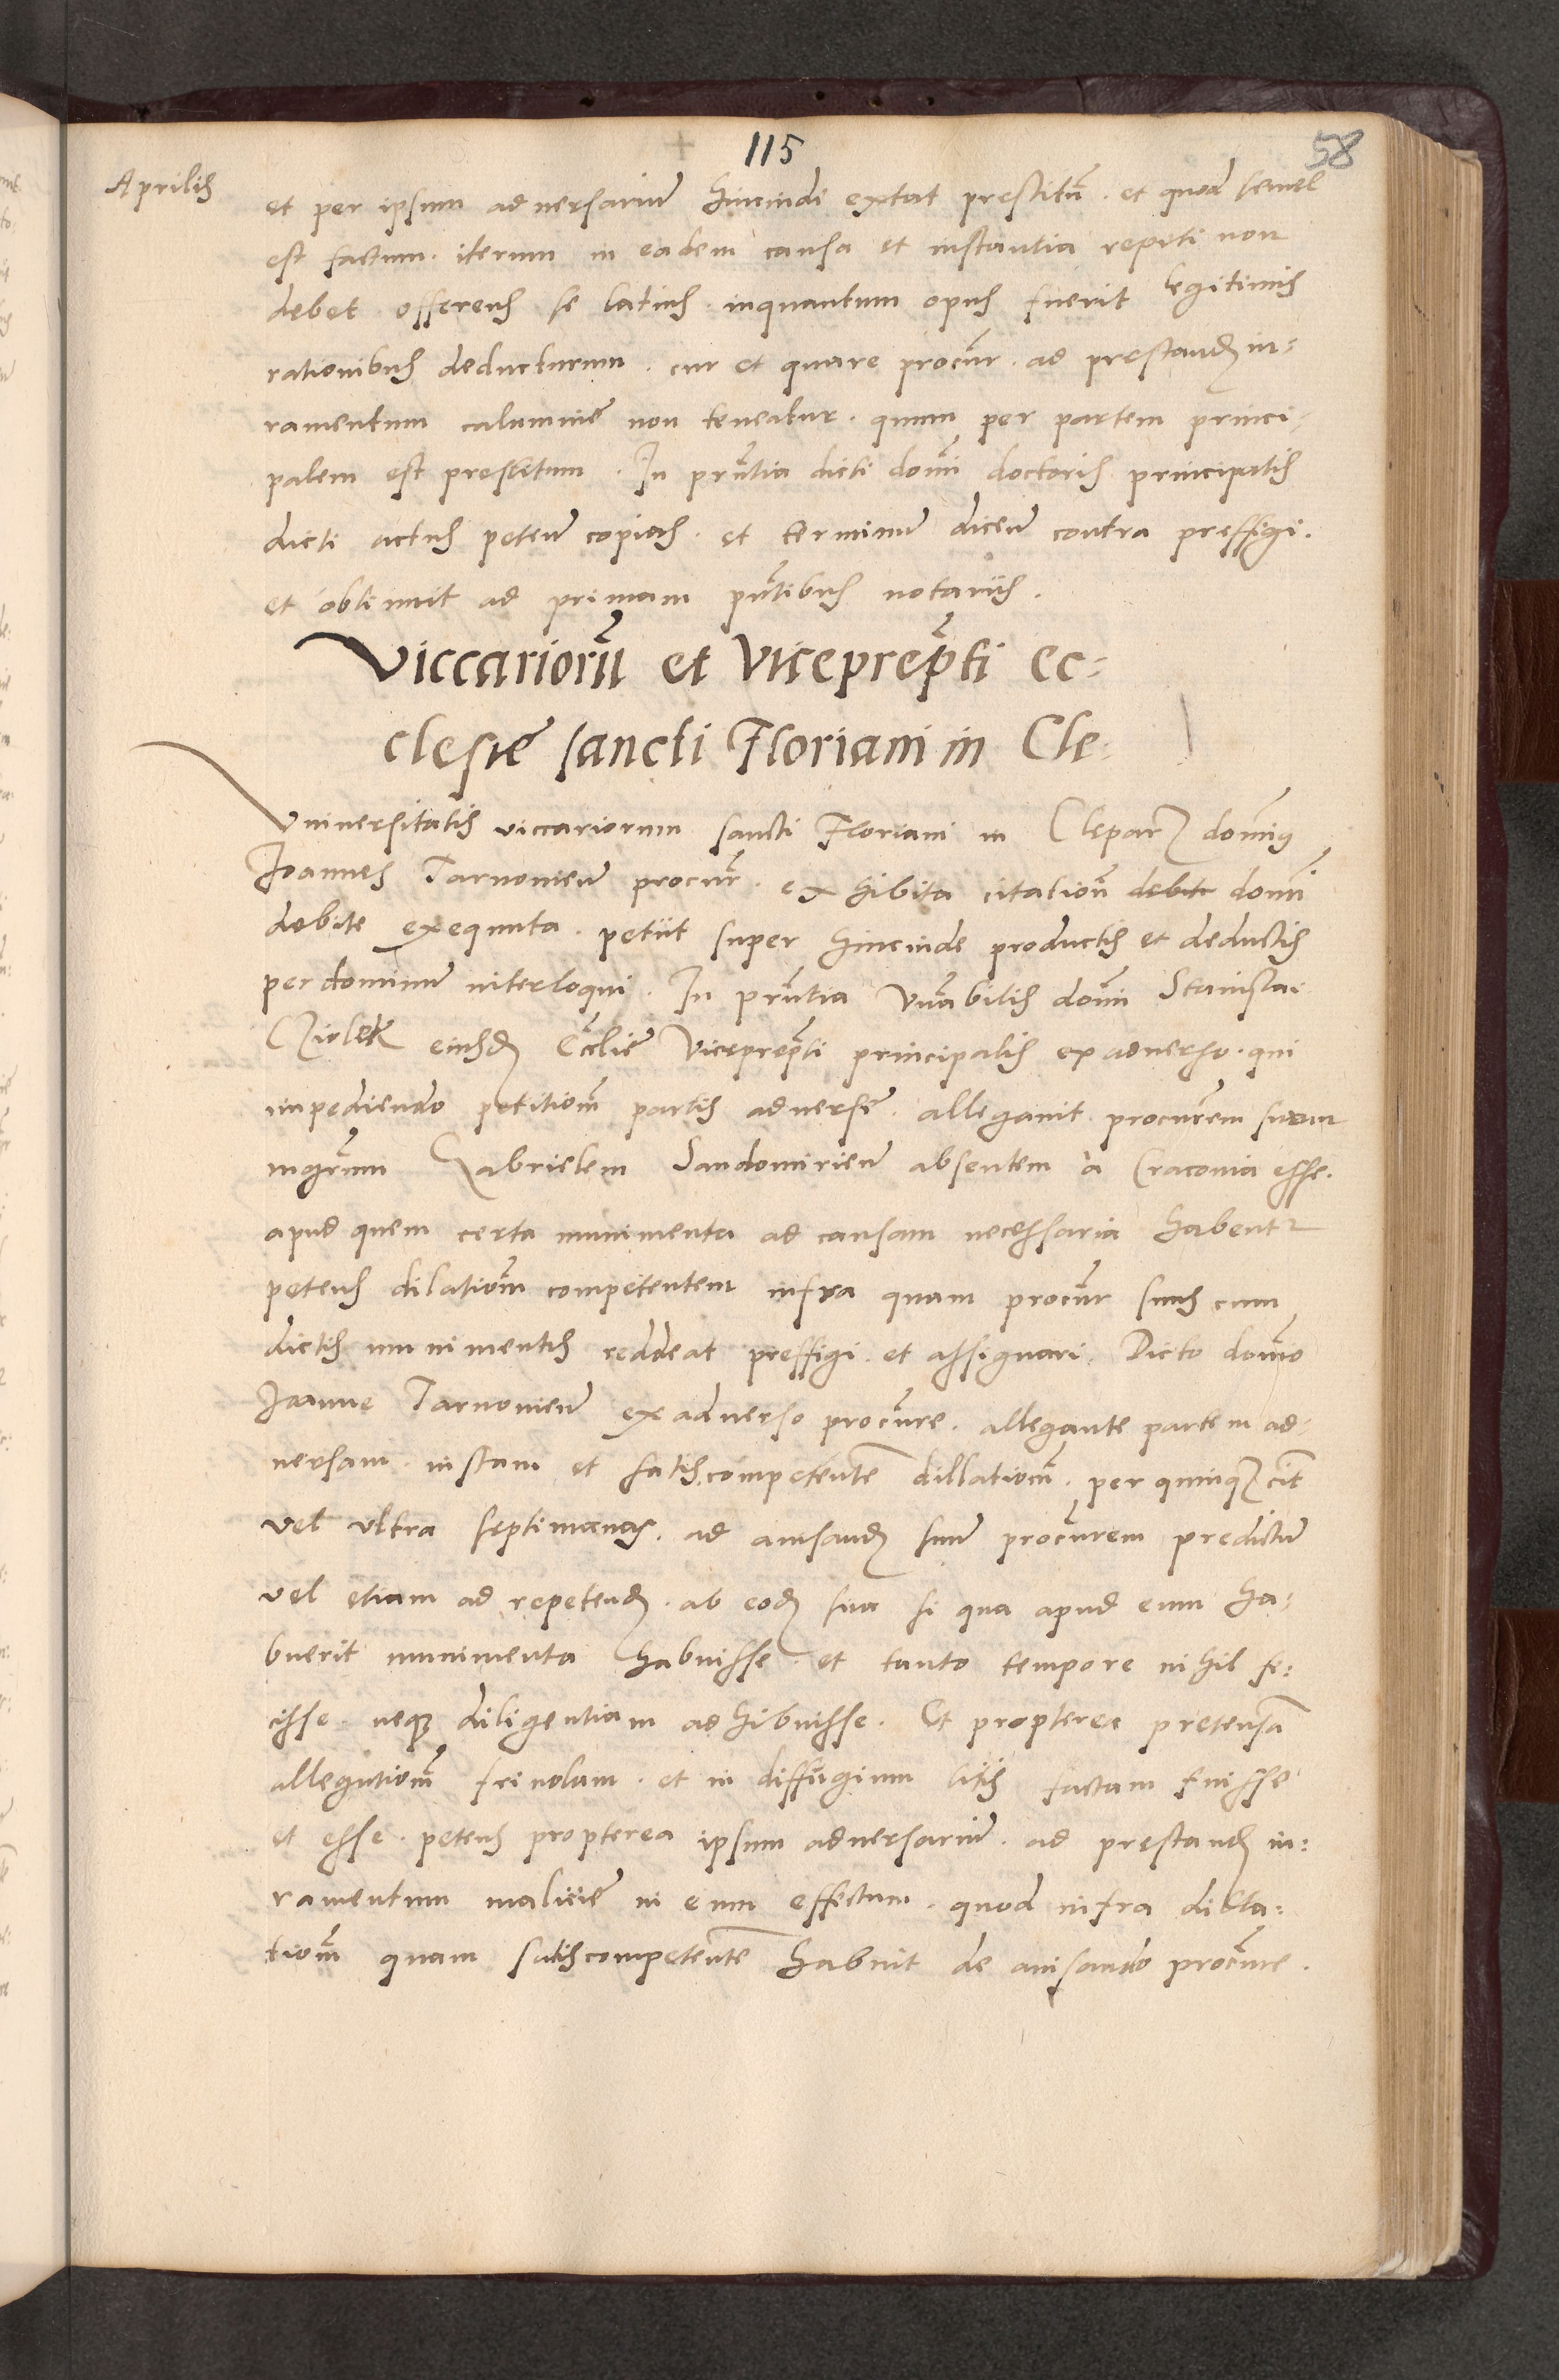 115
58
Aprilis
et per ipsum adversariu͂ hincinde extat prestitu͂ . et quod semel
est factum . iterum in eadem causa et instantia repeti non
debet offerens se latius . inquantum opus fuerit legitimis
rationibus deducturum . cur et quare procur͂ . ad prestand iu=
ramentum calumnie non teneatur . quum per partem princi-
palem est prestitum . In prn͂tia dicti domi͂ doctoris principalis
dicti actus peten͂ copias . et terminu͂ dicen͂ contra preffigi .
et obtinuit ad primam pn͂tibus notariis .
Viccarioru͂ et Viceprep͂ti ec=
clesie sancti Floriani in Cle-
Vniversitatis viccariorum sancti Floriani in Cleparz domi͂us
Joannes Tarnovien͂ procur͂ . exhibita citation͂ debite domi͂
debite exequuta . petiit super hincinde productis et deductis
per dominu͂ interloqui . In prn͂tia Vn͂abilis domi͂ Stanislai
Cziolek eiusd Eccl͂ie Viceprep͂ti principalis ex adverso . qui
impediendo petitiom͂ partis adverse . allegavit procur͂em suum
mgr͂um Gabrielem Sandomirien͂ absentem a Cracovia esse .
apud quem certa munimenta ad causam necessaria habentr
petens dilatiom͂ competentem infra quam procur͂ suus cum
dictis munimentis reddeat preffigi . et assignari . Dicto domi͂o
Joanne Tarnovien͂ ex adverso procur͂e . allegante partem ad-
versam . iustam et satis competente͂ dillatiom͂ . per quinqz cit͂
vel ultra septimanas . ad avisand suu͂ procur͂em predictu͂
vel etiam ad repetend . ab eod sua si qua apud eum ha=
buerit munimenta habuisse . et tanto tempore nihil fe=
cisse neqz diligentiam adhibuisse . Et propterea pretensa͂
allegatiom͂ frivolam . et in diffugium litis factam fuisse
et esse . petens propterea ipsum adversariu͂ . ad prestand iu=
ramentum malicie in eum effectum . quod infra dilla=
tiom͂ quam satis competente͂ habuit de avisando procur͂e .